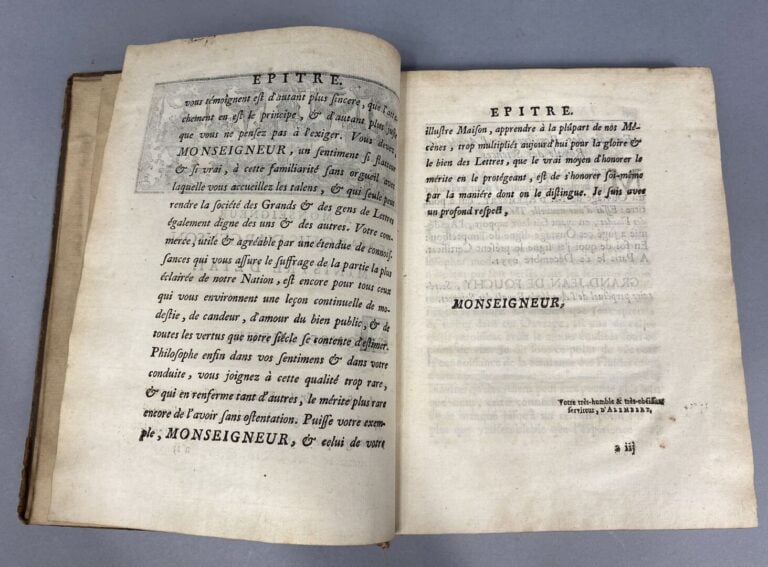 EPITRE.
vous témoignent est d'autant plus sincere, que l'atta-
chement en est le principe, & d'autant plus juste,
que vous ne pensez pas à l'exiger. Vous devez,
MONSEIGNEUR, un sentiment si flatteur
& si vrai, à cette familiarité sans orgueil avec
laquelle vous accueillez les talens, & qui seule peut
rendre la société des Grands & des gens de Lettres
également digne des uns & des autres. Votre com-
merce, utile & agréable par une étendue de connois-
sances qui vous assure le suffrage de la partie la plus
éclairée de notre Nation, est encore pour tous ceux
qui vous environnent une leçon continuelle de mo-
destie, de candeur, d'amour du bien public, & de
toutes les vertus que notre siécle se contente d'estimer.
Philosophe enfin dans vos sentimens & dans votre
conduite, vous joignez à cette qualité trop rare,
& qui en renferme tant d'autres, le mérite plus rare
encore de l'avoir sans ostentation. Puisse votre exem-
ple, MONSEIGNEUR, & celui de votre
EPITRE.
illustre Maison, apprendre à la plûpart de nos Mé-
cènes, trop multipliés aujourd'hui pour la gloire &
le bien des Lettres, que le vrai moyen d'honorer le
mérite en le protégeant, est de s'honorer soi-même
par la maniére dont on le distingue. Je suis avec
un profond respect,
MONSEIGNEUR,
Votre très-humble & très-obéissant
serviteur, D'ALEMBERT,
a iij